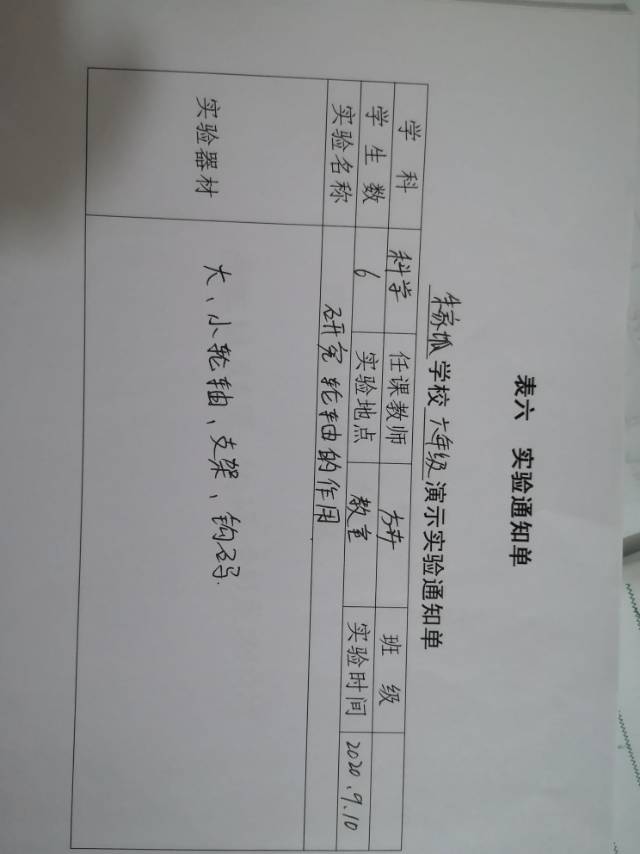 表六 实验通知单
学校六年级演示实验通知单
学科 科学 任课教师 班级
学生数 6 实验地点 教室 实验时间 2020.9.10
实验名称 研究轮轴的作用
实验器材 大、小轮轴、支架、钩码.